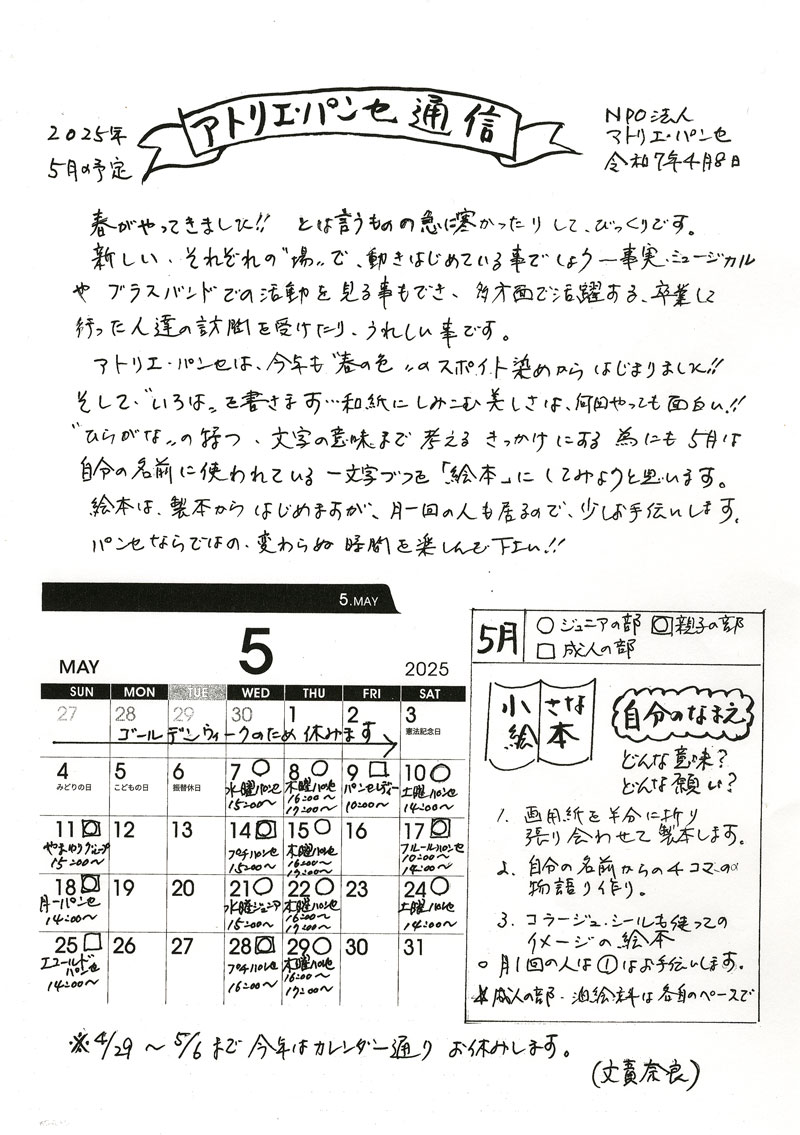 2025年
5月の予定
アトリエ・パンセ通信
NPO法人
アトリエ・パンセ
令和7年4月8日
春がやってきました!! とは言うものの急に寒かったりして、びっくりです。
新しい、それぞれの"場"で、動きはじめている事でしょう〜事実・ミュージカル
や ブラスバンドでの活動を見る事もでき、多方面で活躍する、卒業して
行った人達の訪問を受けたり、うれしい事です。
アトリエ・パンセは、今年も"春の色"のスポイト染めからはじまりました!!
そして、"いろは"を書きます…和紙にしみこむ美しさは、何回やっても面白い!!
"ひらがな"の持つ、文字の意味まで考えるきっかけにする為にも5月は
自分の名前に使われている一文字づつを「絵本」にしてみようと思います。
絵本は、製本からはじめますが、月一回の人も居るので、少しお手伝いします。
パンセならではの、変わらぬ時間を楽しんで下さい!!
5.MAY
MAY 5 2025
SUN MON TUE WED THU FRI SAT
27 28 29 30 1 2 3
憲法記念日
ゴールデンウィークのため休みます
4 5 6 7○ 8○ 9□ 10○
みどりの日 こどもの日 振替休日 水曜パンセ 15:00〜 木曜パンセ 16:00〜 17:00〜 パンセレディー 10:00〜 土曜パンセ 14:00〜
11 12 13 14 15○ 16 17
やまゆりグループ 15:00〜 プチパンセ 15:00〜 木曜パンセ 16:00〜 17:00〜 フルールパンセ 10:00〜 14:00〜
18 19 20 21○ 22○ 23 24○
月一パンセ 14:00〜 水曜ジュニア 15:00〜 木曜パンセ 16:00〜 17:00〜 土曜パンセ 14:00〜
25□ 26 27 28 29○ 30 31
エコールドパンセ 14:00〜 プチパンセ 16:00〜 木曜パンセ 16:00〜 17:00〜
5月 ○ジュニアの部 親子の部
□成人の部
小さな
絵本
自分のなまえ
どんな意味?
どんな願い?
1. 画用紙を半分に折り
張り合わせて製本します。
2. 自分の名前からの4コマの
物語り作り。
3. コラージュ・シールも使っての
イメージの絵本
○月1回の人は①はお手伝いします。
成人の部・油絵科は各自のペースで
※4/29〜5/6まで今年はカレンダー通りお休みします。
(文責奈良)